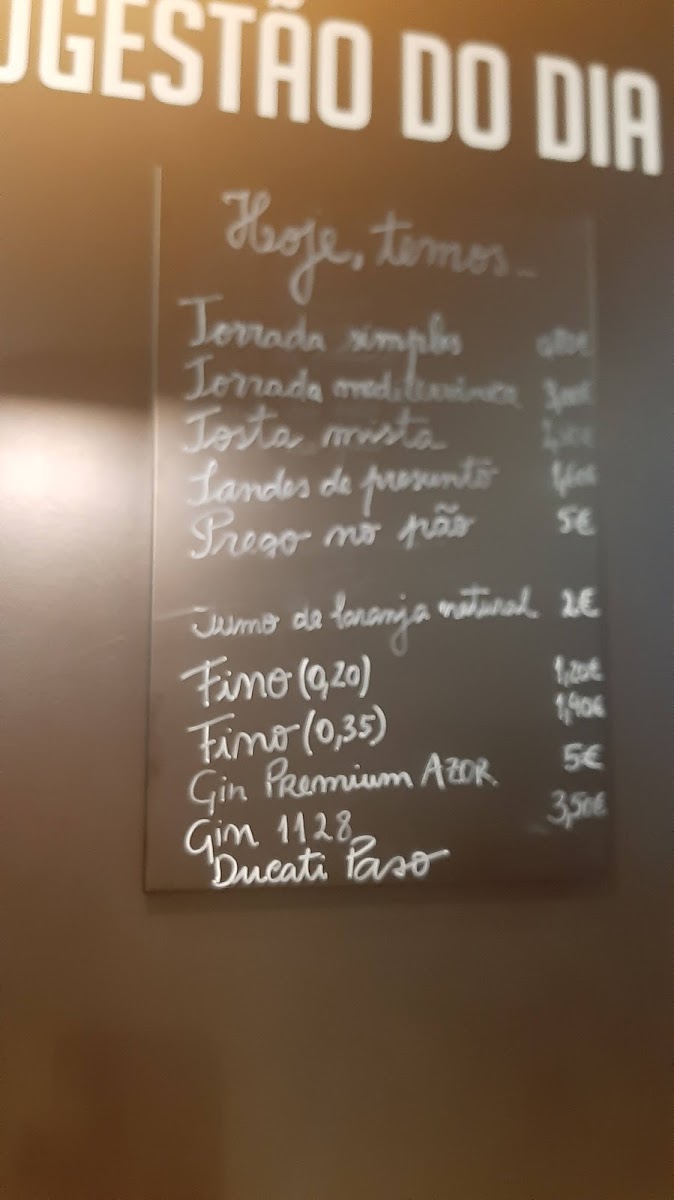 UGESTÃO DO DIA
Hoje, temos...
Torrada simples
Torrada mediterrânica
Tosta mista
Sandes de presunto
Prego no pão 5€
Sumo de laranja natural 2€
Fino (0,20) 1,20€
Fino (0,35) 1,90€
Gin Premium AZOR 5€
Gin 1128 3,50€
Ducati Paso